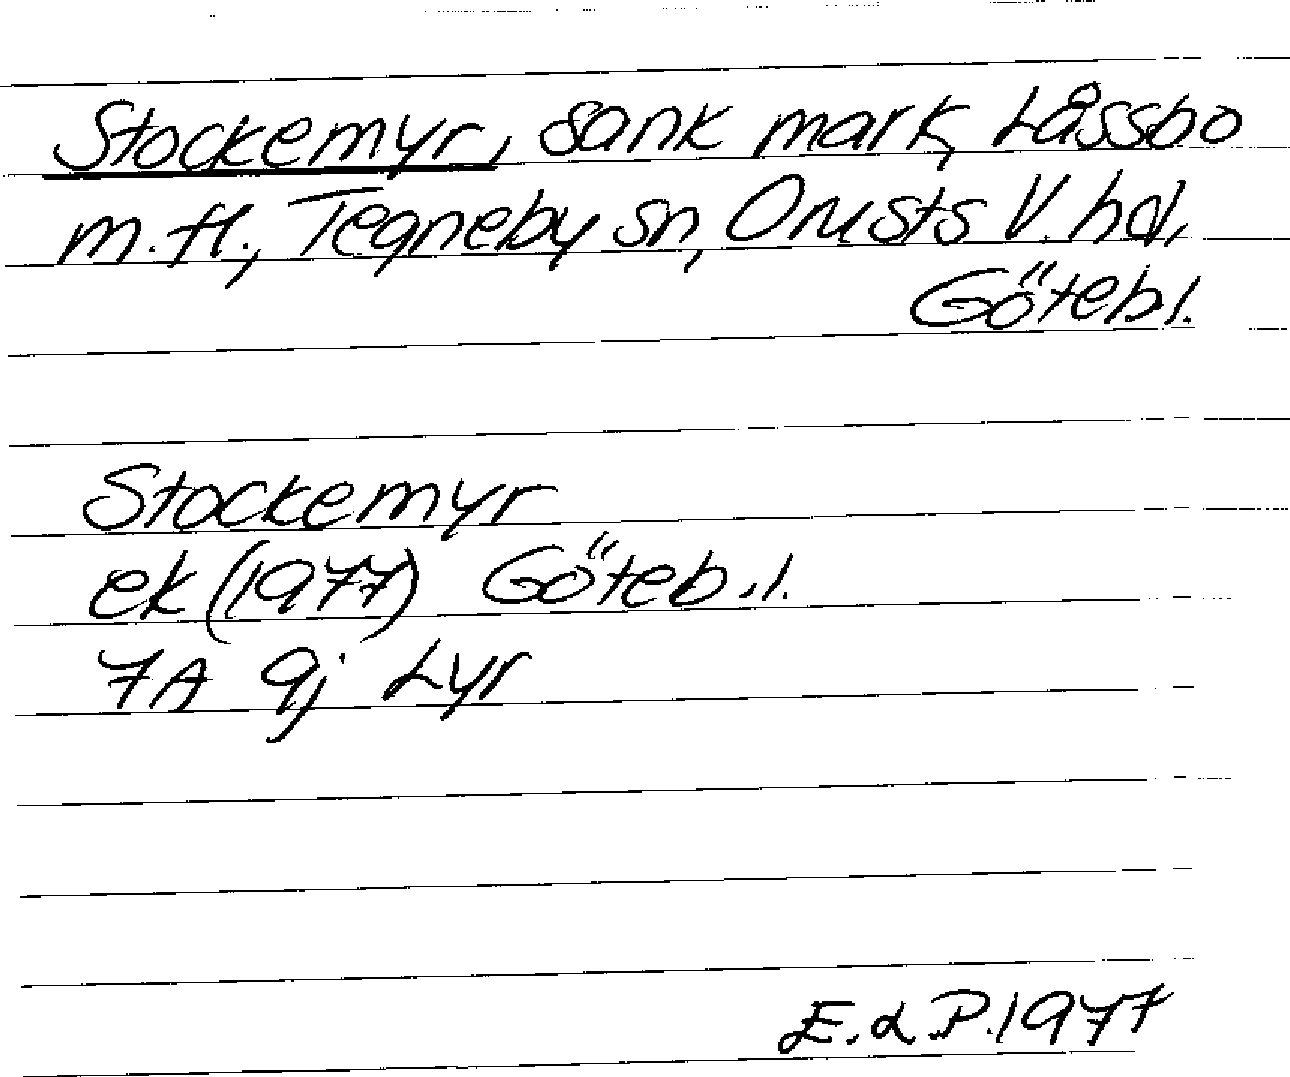 Stockemyr, sank mark, Låssbo
m.fl., Tegneby sn, Orusts V. hd,
Göteb.l.
Stockemyr
ek (1977) Göteb.l.
7A 9j Lyr
E.d.P. 1977